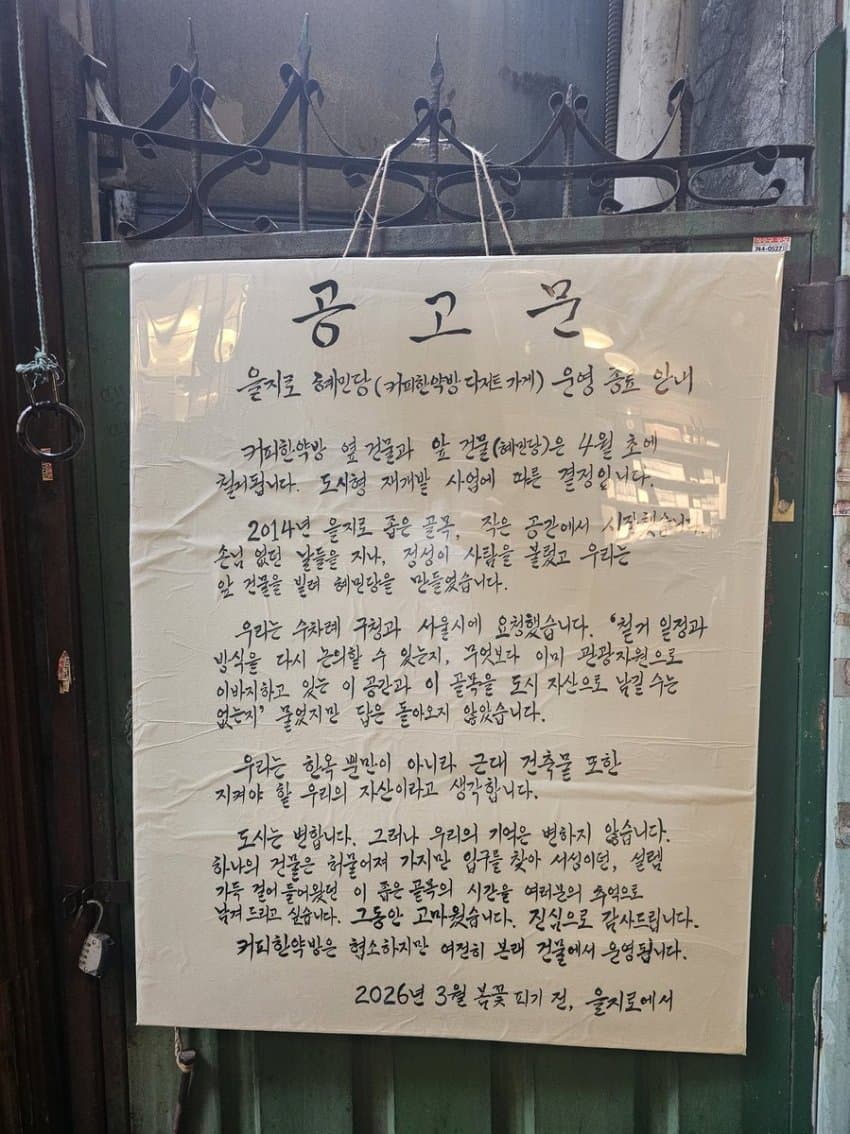 공고문
을지로 혜민당(커피한약방 디저트 가게) 운영 종료 안내
커피한약방 옆 건물과 앞 건물(혜민당)은 4월 초에
철거됩니다. 도시형 재개발 사업에 따른 결정입니다.
2014년 을지로 좁은 골목, 작은 공간에서 시작했습니다.
손님 없던 날들을 지나, 정성이 사람을 불렀고 우리는
앞 건물을 빌려 혜민당을 만들었습니다.
우리는 수차례 구청과 서울시에 요청했습니다. '철거 일정과
방식을 다시 논의할 수 있는지, 무엇보다 이미 관광자원으로
이바지하고 있는 이 공간과 이 골목을 도시 자산으로 남길 수는
없는지' 물었지만 답은 돌아오지 않았습니다.
우리는 한옥 뿐만이 아니라 근대 건축물 또한
지켜야 할 우리의 자산이라고 생각합니다.
도시는 변합니다. 그러나 우리의 기억은 변하지 않습니다.
하나의 건물은 허물어져 가지만 입구를 찾아 서성이던, 설렘
가득 걸어 들어왔던 이 좁은 골목의 시간을 여러분의 추억으로
남겨 드리고 싶습니다. 그동안 고마웠습니다. 진심으로 감사드립니다.
커피한약방은 협소하지만 여전히 본래 건물에서 운영됩니다.
2026년 3월 봄꽃 피기 전, 을지로에서